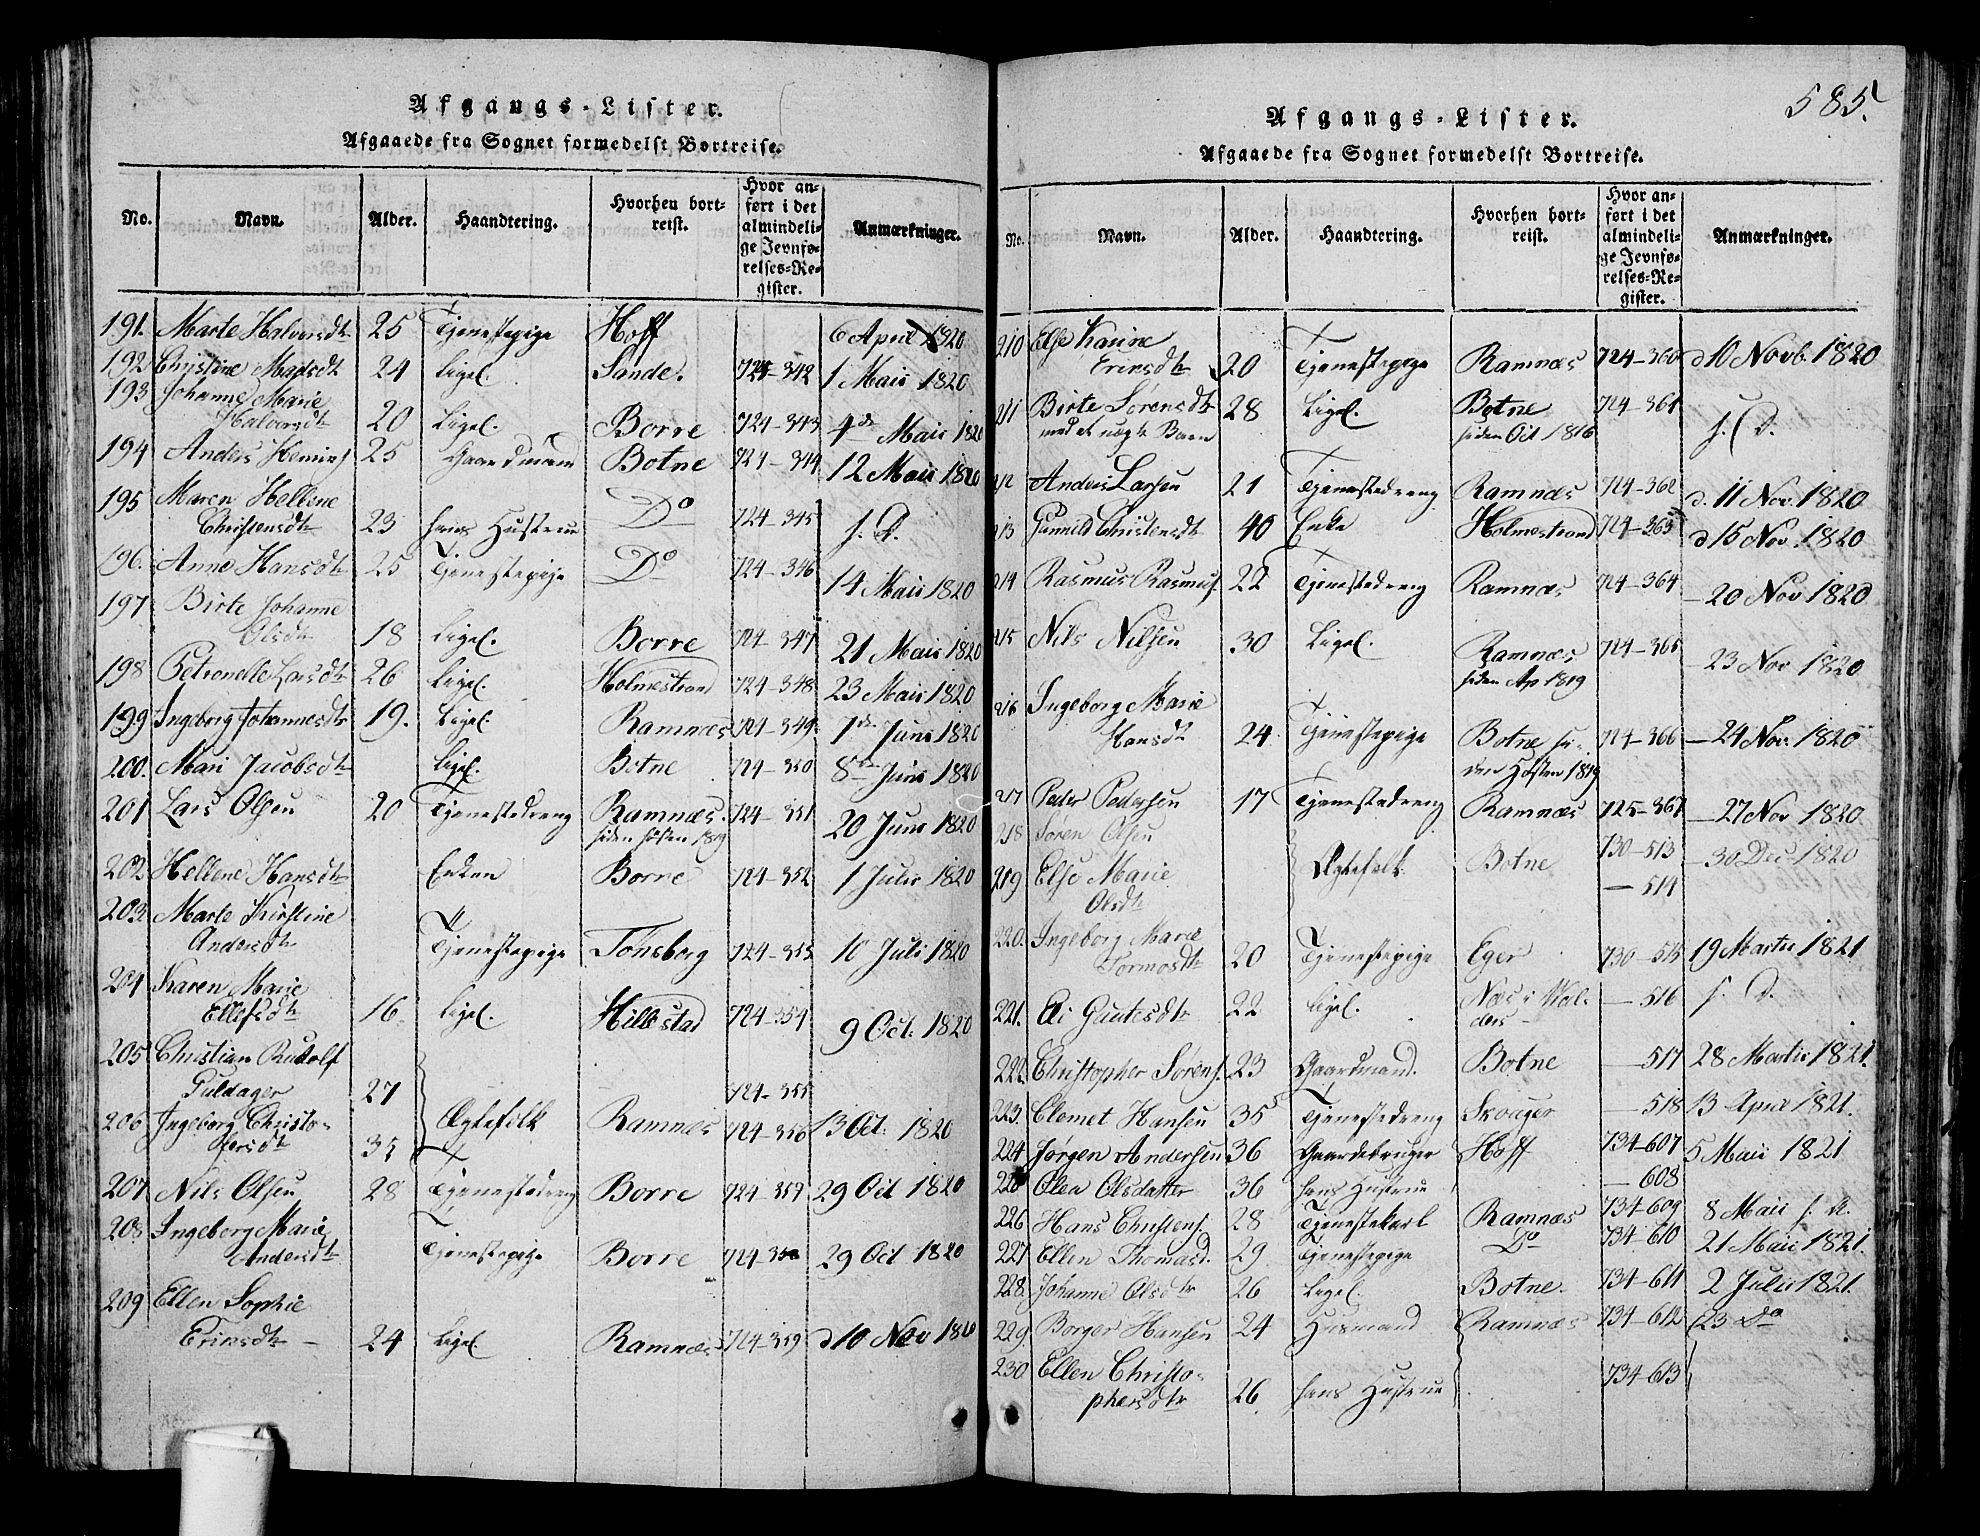 Afgangs-Lister.
Afgaaede fra Sognet formedelst Bortreise.
No. Navn. Alder. Haandtering. Hvorhen bortreist. Hvor anført i det almindelige Jevnførelses-Register. Anmærkninger.
191. Marte Halvorsdtr 25 Tjenestepige Hoff 6 April 1820
192 Christine Madsdt 24 Ligel. Sande. 724-342 1 Maii 1820
193 Johanne Marie
Halvorsdt 20 Ligel. Borre 724-343 4de Maii 1820
194 Anders 25 Gaardmand Botne 724-344 12 Maii 1820
195 Maren Hellene
Christensdtr 23 hans Hustrue Do 724-345 s. D.
196. Anne Hansdtr 25 Tjenestepige Do 724-346 14 Maii 1820
197 Birte Johanne
Olsdtr 18 Ligel. Borre 724-347 21 Maii 1820
198 Petronelle Larsdtr 26 Ligel. Holmestrand 724-348 23 Maii 1820
199 Ingeborg Johannesdtr 19. Ligel. Ramnæs 724-349 1de Juni 1820
200. Mari Jacobsdtr Ligel. Botne 724-350 8de Juni 1820
201 Lars Olsen 20 Tjenestedreng Ramnæs. 724-351 20 Juni 1820
siden Høsten 1819
202 Hellene Hansdtr Enken Borre 724-352 1 Julii 1820
203. Marte Kirstine
Andersdtr Tjenestepige Tönsberg 724-353 10 Juli 1820
204 Karen Marie
Ellefsdtr 16. Ligel. Hillestad 724-354 9 Oct. 1820
205 Christian Rudolf
Fuldager 27 724-355
206 Ingeborg Christo-
fersdtr 35 Ægtefolk Ramnæs 724-356 13 Oct. 1820
207 Nils Olsen 28 Tjenestedreng Borre 724-357 29 Oct 1820
208 Ingeborg Marie
Andersdtr Tjenestepige Borre 724-358 29 Oct 1820
209 Ellen Sophie
Erinsdtr 24 Ligel. Ramnæs 724-359 d 10 Nov 1820
585.
Afgangs-Lister.
Afgaaede fra Sognet formedelst Bortreise.
No. Navn. Alder. Haandtering. Hvorhen bortreist. Hvor anført i det almindelige Jevnførelses-Register. Anmærkninger.
210 Else Karine
Erinsdtr 20 Tjenestepige Ramnæs 724-360 d 10 Novb. 1820
211 Birte Sørensdtr 28 Ligel. Botne 724-361 s. D.
med et uægte Barn siden Oct 1816
212 Anders Larsen 21 Tjenestedreng Ramnæs 724-362 d. 11 Nov. 1820
213 Gunild Christensdt 40 Enke Holmestrand 724-363 d 15 Nov. 1820
214 Rasmus Rasmus. 22 Tjenestedreng Ramnæs 724-364 - 20 Nov 1820
215 Nils Nilsen 30 Ligel. Ramnæs 724-365 - 23 Nov 1820
siden Ap 1819
216 Ingeborg Marie
Hansdt 24 Tjenestepige Botne si- 724-366 - 24 Nov. 1820
den Høsten 1819
217 Peder Pedersen 17 Tjenestedreng Ramnæs 725-367 - 27 Nov 1820
218 Søren Olsen 730-513
219 Else Marie Ægtefolk Botne - 514 - 30 Dec 1820
Olsdtr
220. Ingeborg Marie
Tormosdtr 20 Tjenestepige Eger 730-515 19 Martii 1821
221. Eli Gutesdtr 22 Ligel. Næs i Wal- - 516 s. D.
ders
222. Christopher Sørens. 23 Gaardmand. Botne - 517 28 Martii 1821
223. Clemet Hansen 35 Tjenestedreng Skouger - 518 13 April 1821.
224 Jørgen Andersen 36 Gaardebruger Hoff 734-607 5 Maii 1821
225 Olea Olsdatter 36 hans Hustrue - 608
226 Hans Christens. 28 Tjenestekarl Ramnæs 734-609 8 Maii s. A.
227 Ellen Thomasd. 29 Tjenestepige Do 734-610 21 Maii 1821.
228. Johanne Olsdtr 26 Ligel. Botne. 734-611 2 Julii 1821.
229. Borger Hansen 24 Husmand Ramnæs 734-612 23 Do
230 Ellen Christo-
phersdtr 26 hans Hustrue 734-613